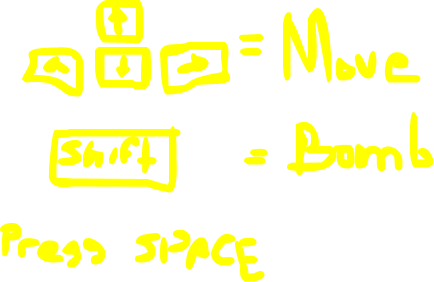 = Move
Shift = Bomb
Press SPACE